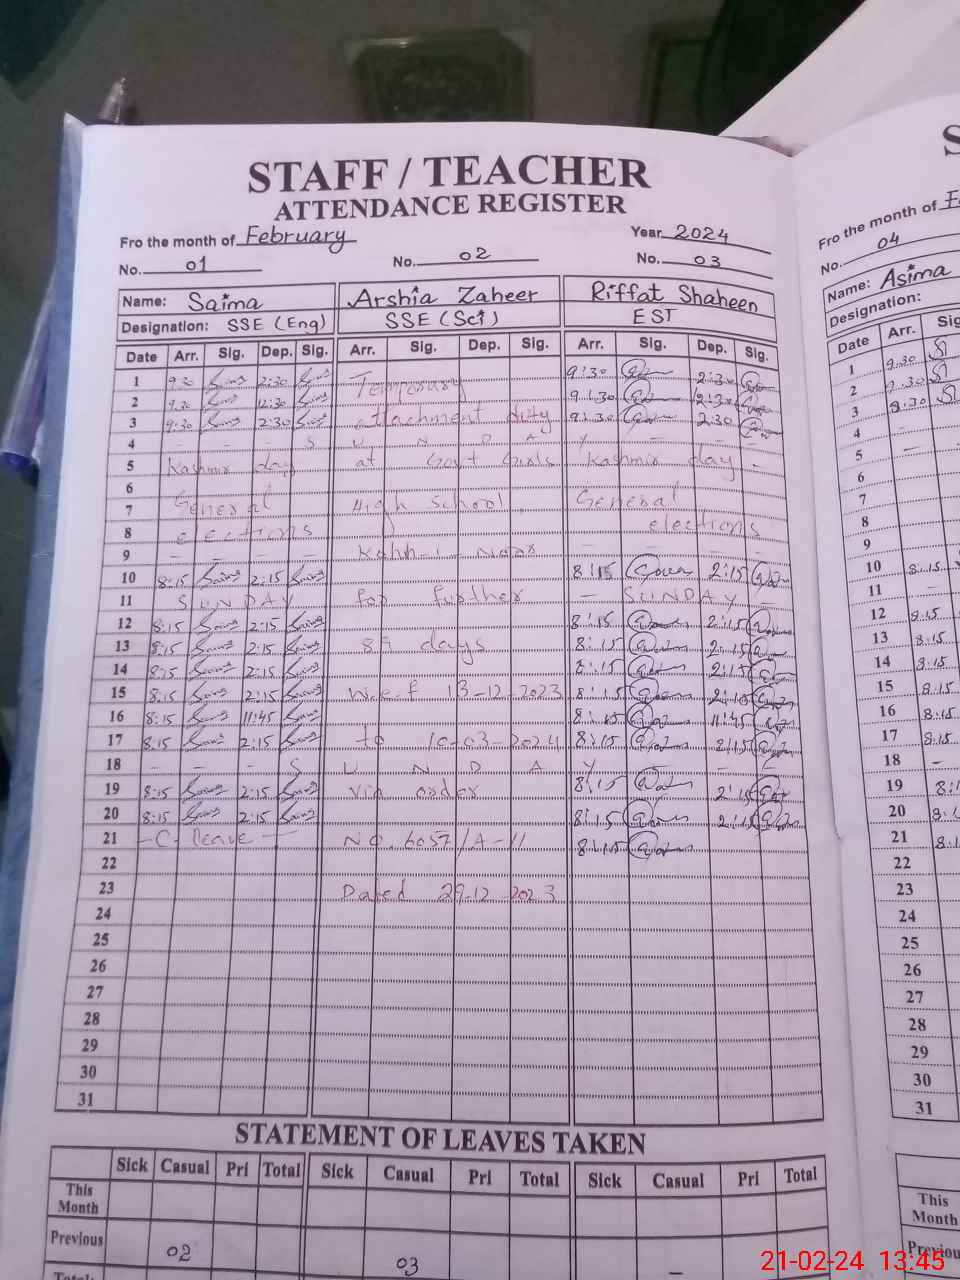 STAFF / TEACHER
ATTENDANCE REGISTER
Fro the month of February Year 2024
No. 01 No. 02 No. 03
Name: Saima Arshia Zaheer Riffat Shaheen
Designation: SSE (Eng) SSE (Sci) EST
Date Arr. Sig. Dep. Sig. Arr. Sig. Dep. Sig. Arr. Sig. Dep. Sig.
1 9:30 2:30 Temporary 9:30 2:30
2 9:30 12:30 9:30 2:30
3 9:30 2:30 attachment duty 9:30 2:30
4 - - - S U N D A Y - -
5 Kashmir day at Govt Girls Kashmir day -
6
7 General High School General
8 elections elections
9 - - - - Kahh-i Noor - - - -
10 8:15 2:15 8:15 2:15
11 SUNDAY for further - SUNDAY -
12 8:15 2:15 8:15 2:15
13 8:15 2:15 89 days 8:15 2:15
14 8:15 2:15 8:15 2:15
15 8:15 2:15 w.e.f 13-12-2023 8:15 2:15
16 8:15 11:45 8:15 11:45
17 8:15 2:15 to 10-03-2024 8:15 2:15
18 - - - S U N D A Y - - -
19 8:15 2:15 via order 8:15 2:15
20 8:15 2:15 8:15 2:15
21 - C. leave - No. 6057/A-11 8:15
22
23 Dated 29-12-2023
24
25
26
27
28
29
30
31
STATEMENT OF LEAVES TAKEN
Sick Casual Pri Total Sick Casual Pri Total Sick Casual Pri Total
This Month
Previous 02 03 -
Total:
S
Fro the month of
No. 04
Name: Asima
Designation:
Date Arr.
1 9.30
2 9.30
3 9.30
4 -
5 -
6
7
8
9
10 8:15
11 -
12 8:15
13 8:15
14 8:15
15 8:15
16 8:15
17 8:15
18 -
19
20
21
22
23
24
25
26
27
28
29
30
31
This Month
21-02-24 13:45